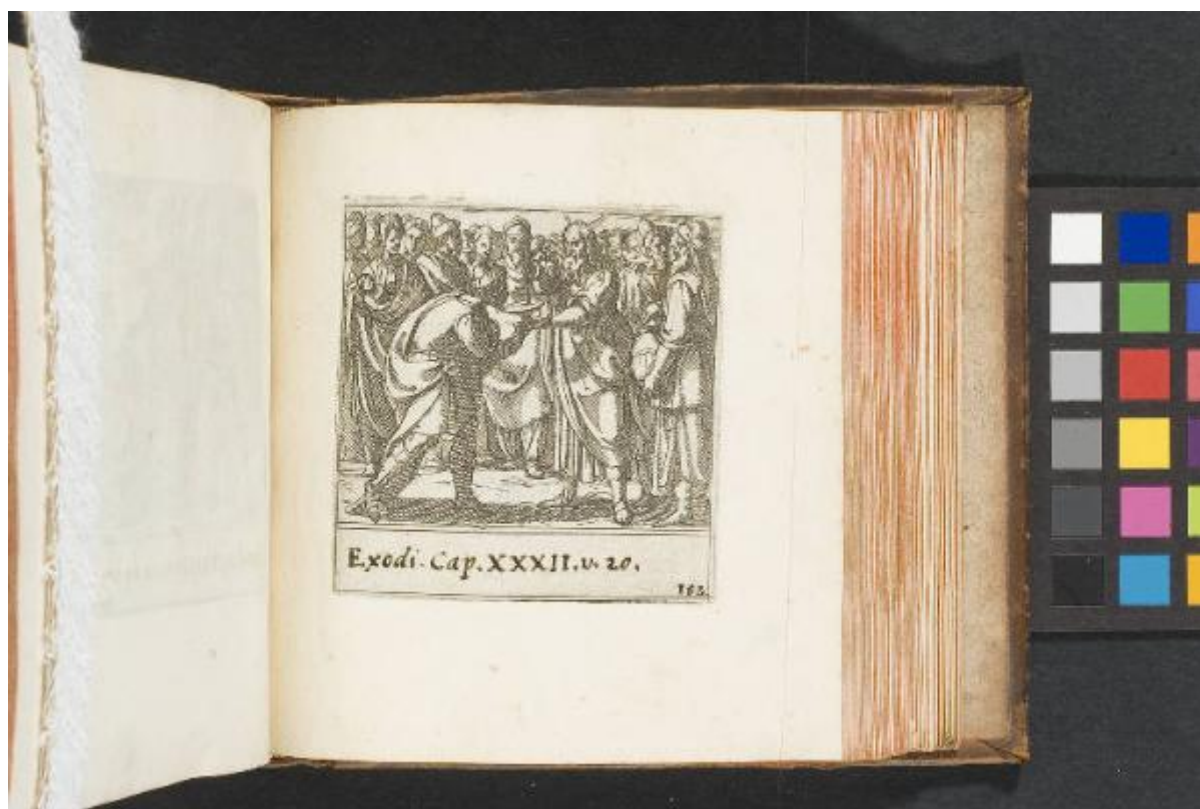 Exodi. Cap. XXXII. v. 20.